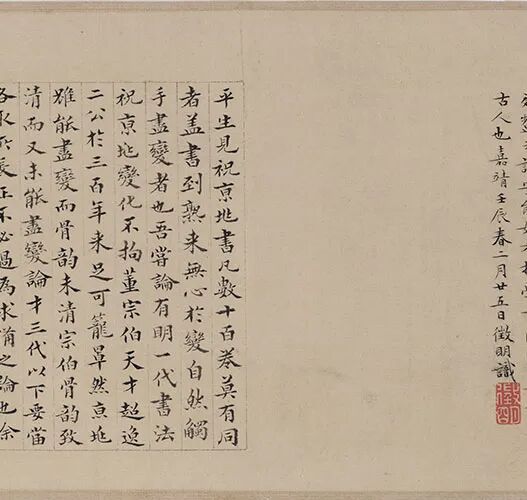 古人也嘉靖壬辰春二月廿五日徵明識
徵明
平生見祝京兆書凡數十百卷莫有同
者蓋書到熟來無心於變自然觸
手盡變者也吾嘗論有明一代書法
祝京兆變化不拘董宗伯天才超逸
二公於三百年來足可籠罩然京兆
雖能盡變而骨韻未清宗伯骨韻致
清而又未能盡變論才三代以下要當
各取所長正不必過為求備之論也余